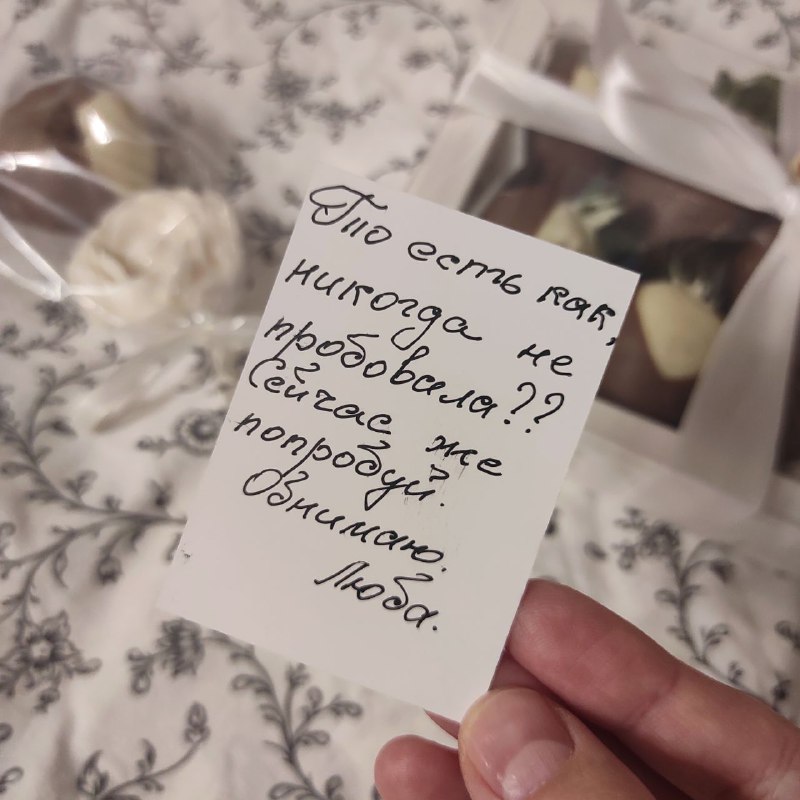 То есть как,
никогда не
пробовала??
Сейчас же
попробуй.
Обнимаю.
Люба.